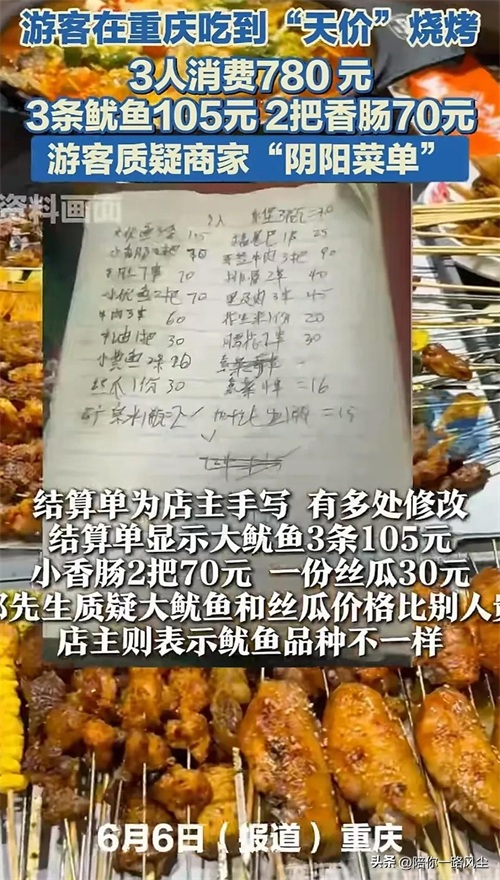 游客在重庆吃到“天价”烧烤
3人消费780元
3条鱿鱼105元 2把香肠70元
游客质疑商家“阴阳菜单”
资料画面
70
小鱿鱼2把 70
牛肉3串 60
30
排骨2串 40
里脊肉3串 45
花生米1份 20
30
丝瓜1份 30
素菜4串=16
矿泉水1瓶=2
结算单为店主手写 有多处修改
结算单显示大鱿鱼3条105元
小香肠2把70元 一份丝瓜30元
先生质疑大鱿鱼和丝瓜价格比别人
店主则表示鱿鱼品种不一样
6月6日（报道）重庆
头条 @陪你一路风尘